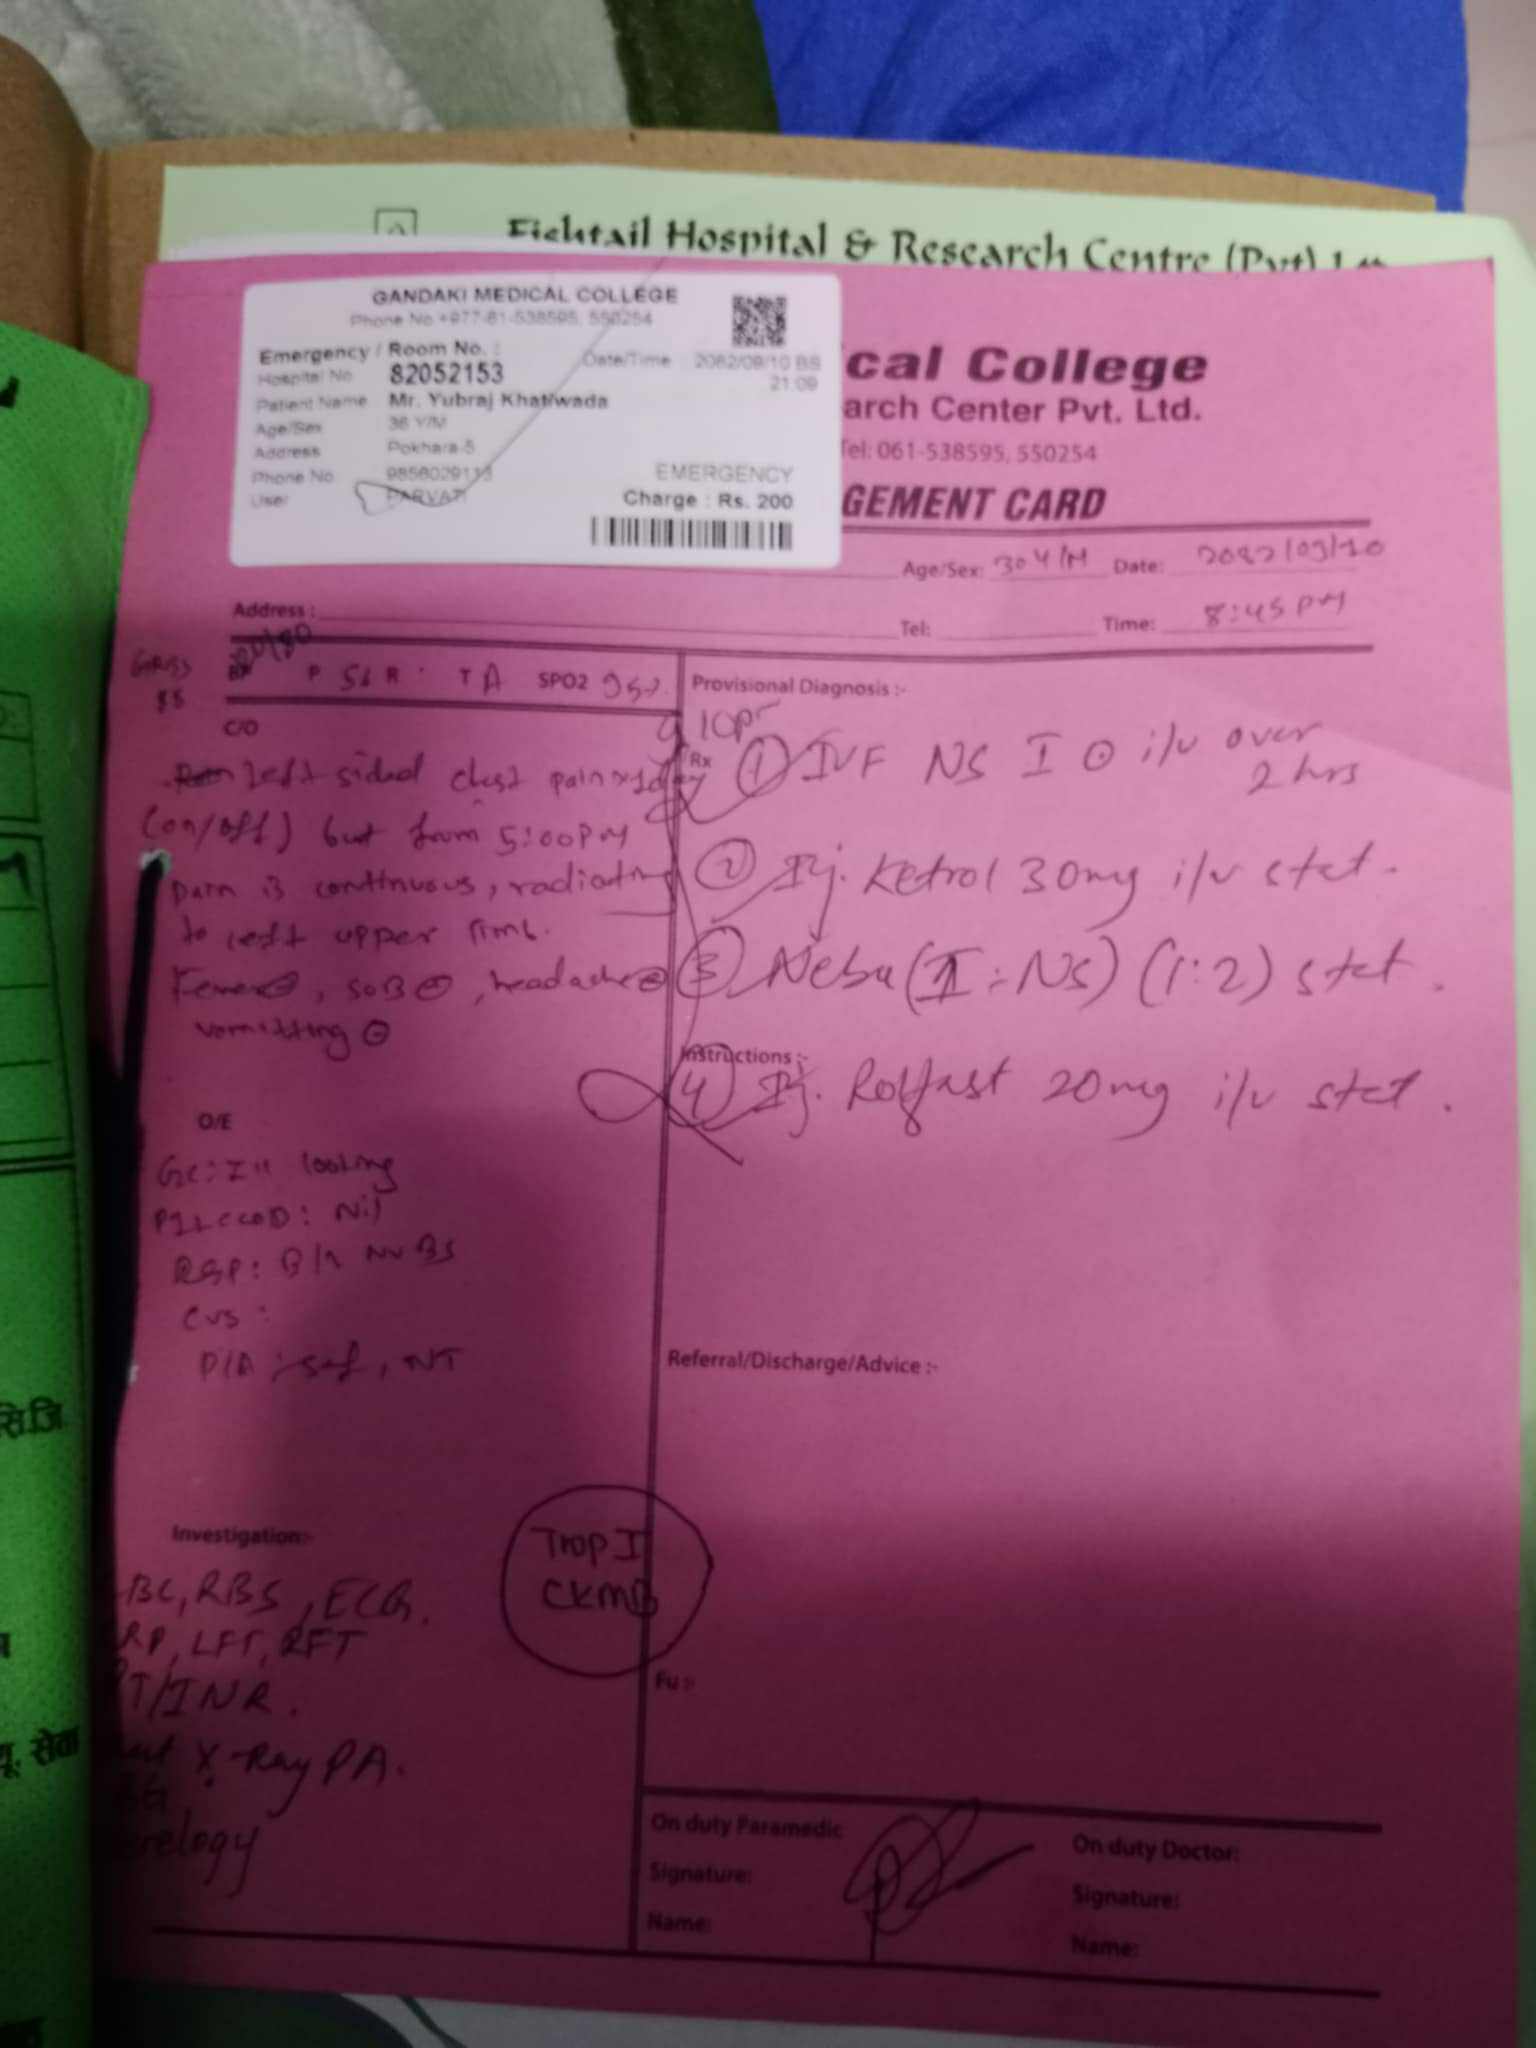 Fishtail Hospital & Research Centre (Pvt)
GANDAKI MEDICAL COLLEGE
Phone No +977-61-538595, 550254
Emergency / Room No. :
Date/Time : 2082/09/10 BS
21:09
Hospital No 82052153
Patient Name Mr. Yubraj Khatiwada
Age/Sex 36 Y/M
Address Pokhara-5
Phone No 9856029113
User PARVATI
EMERGENCY
Charge : Rs. 200
ical College
arch Center Pvt. Ltd.
Tel: 061-538595, 550254
GEMENT CARD
Age/Sex: 30Y/M Date: 2082/09/10
Address :
Tel: Time: 8:45 PM
GRBS
85
BP P R T A SPO2 95%
Provisional Diagnosis :-
C/O
Left sided chest pain x 1day
(on/off) but from 5:00PM
pain is continuous, radiating
to left upper limb.
Fever ⊖, SOB ⊖, headache ⊖
vomitting ⊖
Rx
① IVF NS I ⊙ i/v over
2 hrs
② Inj. Ketrol 30mg i/v stat.
③ Nebu (I : NS) (1:2) stat.
Instructions :-
④ Inj. Rolfast 20mg i/v stat.
O/E
GC: Ill looking
PILCCOD: Nil
RSP: B/L NVBS
CVS :
P/A : soft, NT
Referral/Discharge/Advice :-
Investigation:-
Trop I
CKMB
BC, RBS, ECG.
RP, LFT, RFT
PT/INR.
X-Ray PA.
BG
erology
Fu :-
On duty Paramedic
Signature:
Name:
On duty Doctor:
Signature:
Name:
सि.जि
सेवा